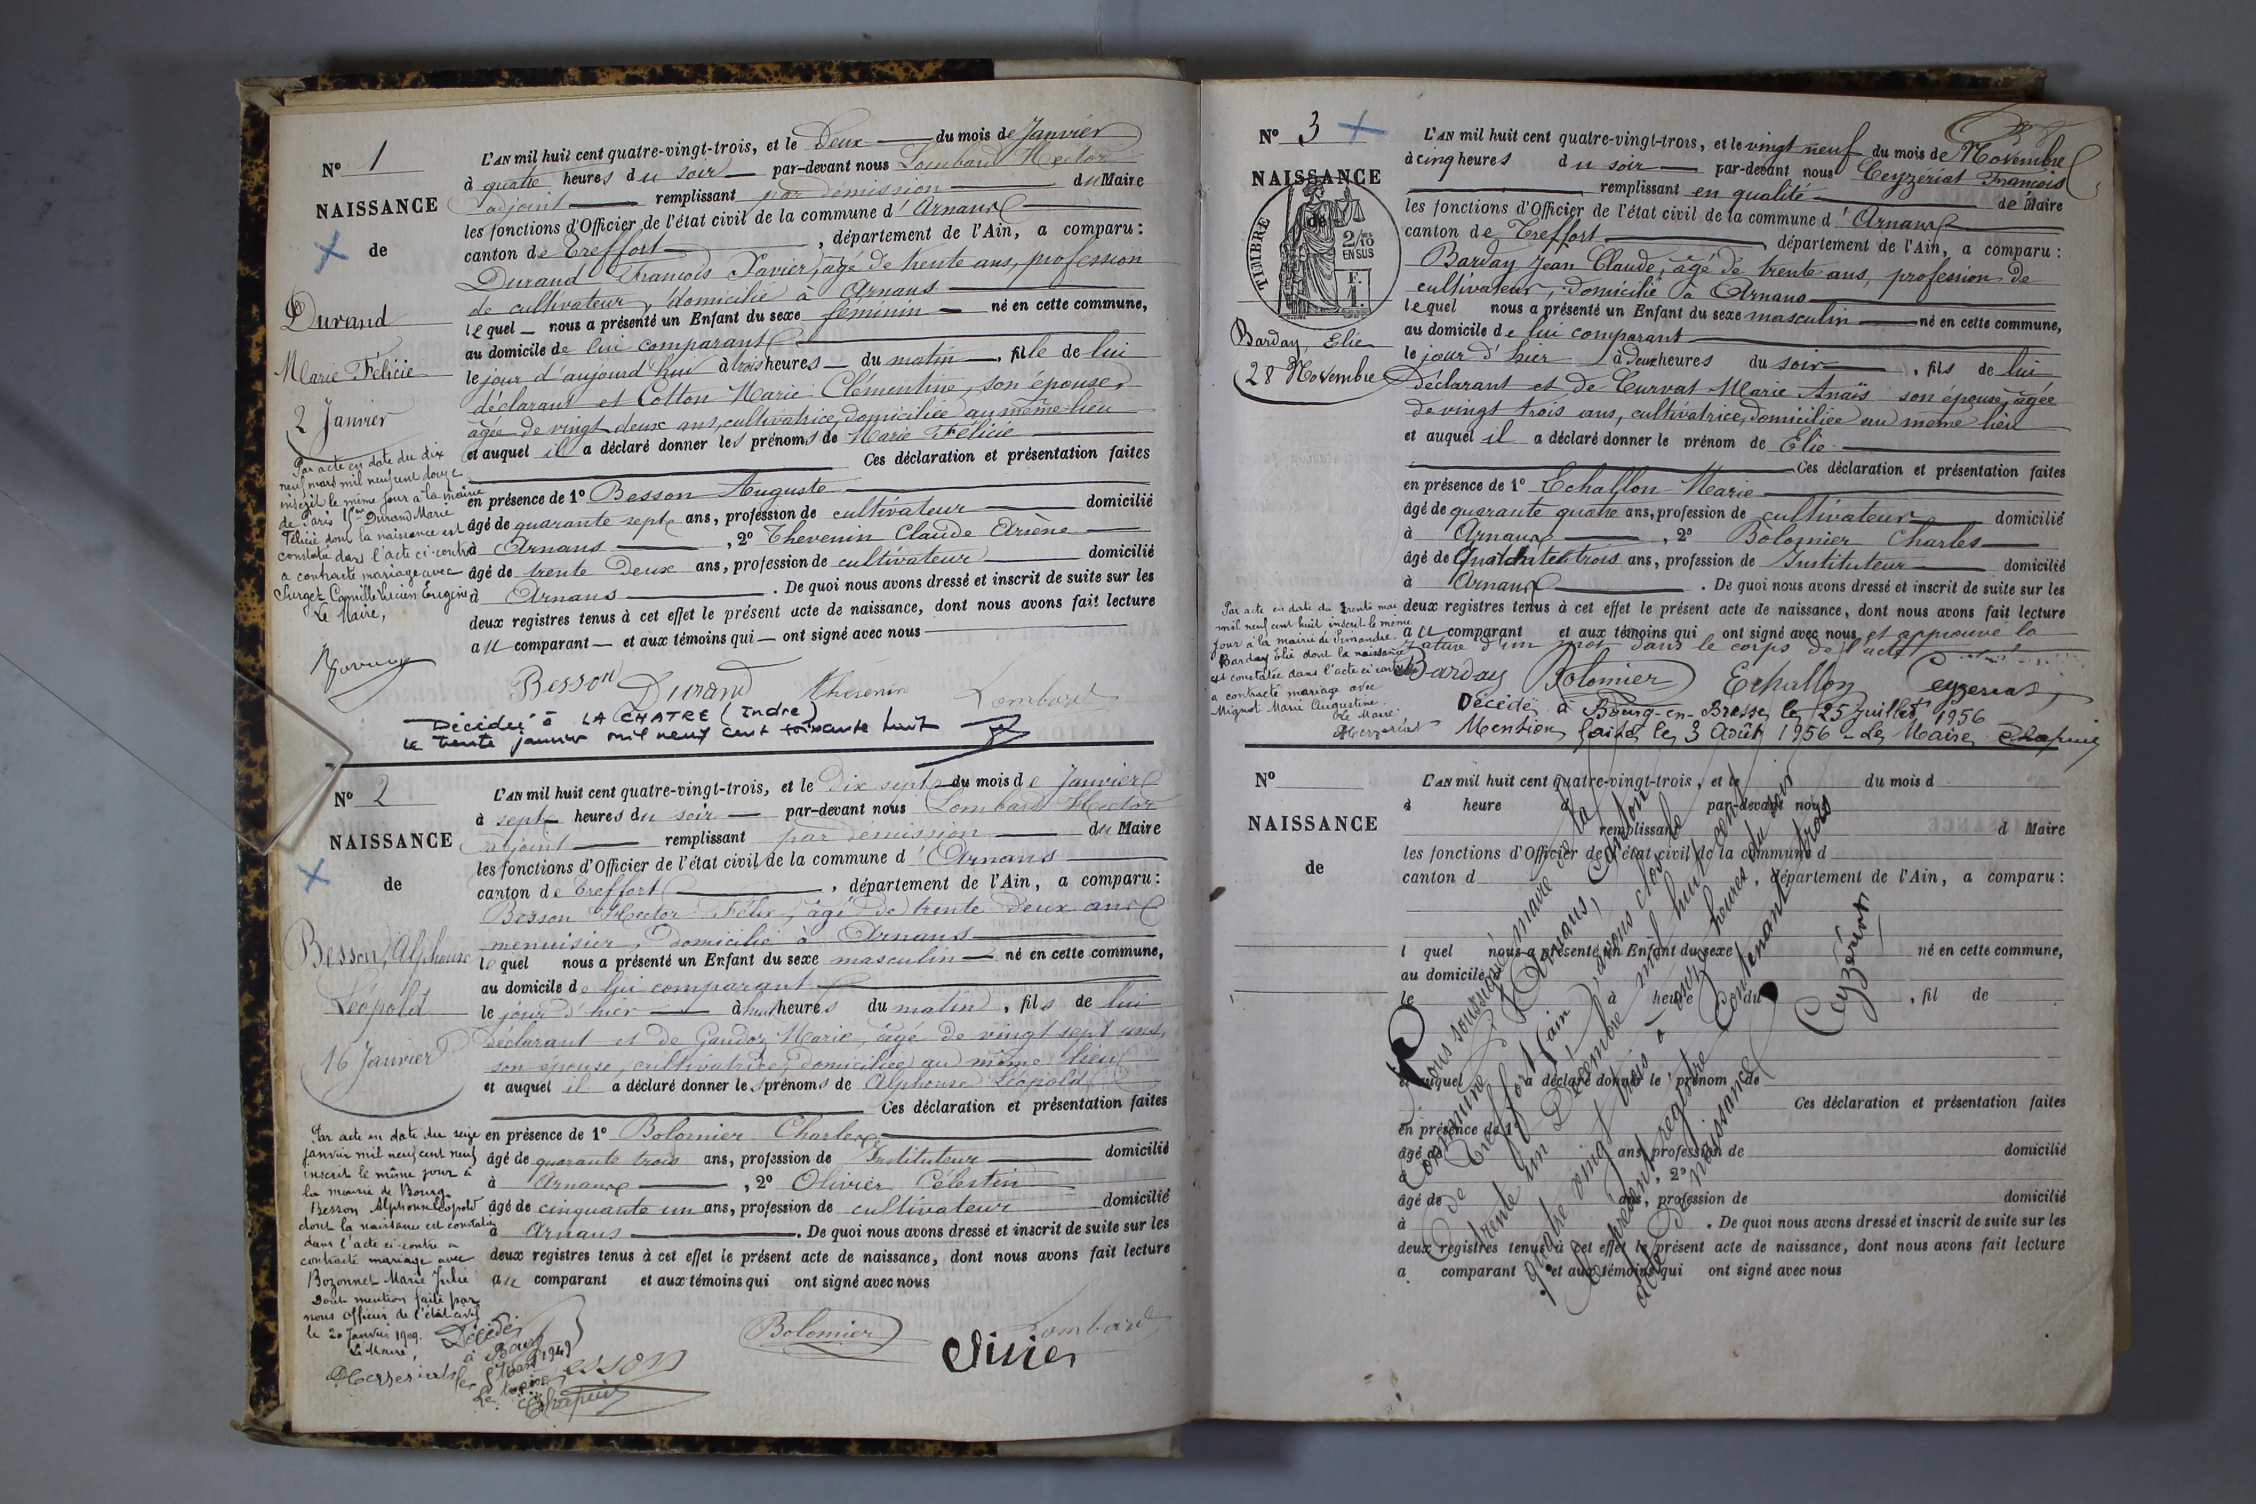 N° 1
NAISSANCE
de
Durand
Marie Félicie
2 Janvier
Par acte en date du dix
neuf mars mil neuf cent douze
inscrit le même jour à la mairie
de Paris Durand Marie
Félicie dont la naissance est
constatée dans l'acte ci-contre
a contracté mariage avec
Camille Lucien Eugène
Le Maire,
L'AN mil huit cent quatre-vingt-trois, et le Deux du mois de Janvier
à quatre heures du soir par-devant nous Lombard Hector
adjoint remplissant par démission du Maire
les fonctions d'Officier de l'état civil de la commune d'Arnans
canton de Treffort, département de l'Ain, a comparu:
Durand François Xavier, âgé de trente ans, profession
de cultivateur, domicilié à Arnans
lequel nous a présenté un Enfant du sexe féminin né en cette commune,
au domicile de lui comparant
le jour d'aujourd'hui à trois heures du matin, fille de lui
déclarant et Cotton Marie Clémentine, son épouse,
âgée de vingt deux ans, cultivatrice, domiciliée au même lieu
et auquel il a déclaré donner les prénoms de Marie Félicie
Ces déclaration et présentation faites
en présence de 1° Besson Auguste
âgé de quarante sept ans, profession de cultivateur domicilié
à Arnans, 2° Thevenin Claude Ariène
âgé de trente deux ans, profession de cultivateur domicilié
à Arnans. De quoi nous avons dressé et inscrit de suite sur les
deux registres tenus à cet effet le présent acte de naissance, dont nous avons fait lecture
au comparant et aux témoins qui ont signé avec nous
Besson Durand Thevenin Lombard
Décédée à LA CHATRE (Indre)
le trente janvier mil neuf cent soixante huit
N° 2
NAISSANCE
de
Besson, Alphonse
Léopold
16 Janvier
Par acte en date du seize
janvier mil neuf cent neuf
inscrit le même jour à
la mairie de Bourg
Besson Alphonse Léopold
dont la naissance est constatée
dans l'acte ci-contre a
contracté mariage avec
Bozonnet Marie Julie
Dont mention faite par
nous officier de l'état-civil
le 20 Janvier 1909.
Le Maire,
L'AN mil huit cent quatre-vingt-trois, et le Dix sept du mois de Janvier
à sept heures du soir par-devant nous Lombard Hector
adjoint remplissant par démission du Maire
les fonctions d'Officier de l'état civil de la commune d'Arnans
canton de Treffort, département de l'Ain, a comparu:
Besson Hector Félix, âgé de trente deux ans
menuisier, domicilié à Arnans
lequel nous a présenté un Enfant du sexe masculin né en cette commune,
au domicile de lui comparant
le jour d'hier à huit heures du matin, fils de lui
déclarant et de Gandoz Marie, âgé de vingt sept ans,
son épouse, cultivatrice, domiciliée au même lieu
et auquel il a déclaré donner les prénoms de Alphonse Léopold
Ces déclaration et présentation faites
en présence de 1° Bolomier Charles
âgé de quarante trois ans, profession de Instituteur domicilié
à Arnans, 2° Olivier Célestin
âgé de cinquante un ans, profession de cultivateur domicilié
à Arnans. De quoi nous avons dressé et inscrit de suite sur les
deux registres tenus à cet effet le présent acte de naissance, dont nous avons fait lecture
au comparant et aux témoins qui ont signé avec nous
Bolomier Lombard
Olivier
Besson
Décédé
à Bourg
le 8 Mars 1949
Le Maire
Chapuis
N° 3
NAISSANCE
de
TIMBRE
2/10
EN SUS
F.
1.
Barday, Elie
28 Novembre
Par acte en date du trente mai
mil neuf cent huit inscrit le même
jour à la mairie de Simandre
Barday Elie dont la naissance
est constatée dans l'acte ci-contre
a contracté mariage avec
Mignot Marie Augustine.
Le Maire.
L'AN mil huit cent quatre-vingt-trois, et le vingt neuf du mois de Novembre
à cinq heures du soir par-devant nous Ceyzériat François
remplissant en qualité de Maire
les fonctions d'Officier de l'état civil de la commune d'Arnans
canton de Treffort, département de l'Ain, a comparu:
Barday Jean Claude, âgé de trente ans, profession de
cultivateur, domicilié à Arnans
lequel nous a présenté un Enfant du sexe masculin né en cette commune,
au domicile de lui comparant
le jour d'hier à deux heures du soir, fils de lui
déclarant et de Curvat Marie Anaïs son épouse, âgée
de vingt trois ans, cultivatrice, domiciliée au même lieu
et auquel il a déclaré donner le prénom de Elie
Ces déclaration et présentation faites
en présence de 1° Echallon Marie
âgé de quarante quatre ans, profession de cultivateur domicilié
à Arnans, 2° Bolomier Charles
âgé de Quarante trois ans, profession de Instituteur domicilié
à Arnans. De quoi nous avons dressé et inscrit de suite sur les
deux registres tenus à cet effet le présent acte de naissance, dont nous avons fait lecture
au comparant et aux témoins qui ont signé avec nous et approuvé la
rature d'un mot dans le corps de l'acte
Barday Bolomier Echallon Ceyzériat
Décédé à Bourg-en-Bresse, le 25 juillet 1956
Mention faite le 3 Août 1956 - Le Maire Chapuis
N°
NAISSANCE
de
L'AN mil huit cent quatre-vingt-trois, et le du mois d
à heure d par-devant nous
remplissant d Maire
les fonctions d'Officier de l'état civil de la commune d
canton d , département de l'Ain, a comparu:
l quel nous a présenté un Enfant du sexe né en cette commune,
au domicile d
le à heure du , fil de
et auquel a déclaré donner le prénom de
Ces déclaration et présentation faites
en présence de 1°
âgé de ans, profession de domicilié
à , 2°
âgé de ans, profession de domicilié
à . De quoi nous avons dressé et inscrit de suite sur les
deux registres tenus à cet effet le présent acte de naissance, dont nous avons fait lecture
a comparant et aux témoins qui ont signé avec nous
Nous soussigné, maire de la
Commune d'Arnans, Canton
de Treffort (ain), avons clos le
trente un Décembre mil huit cent
quatre vingt trois à onze heures du soir
le présent registre contenant trois
actes de naissance
Ceyzériat